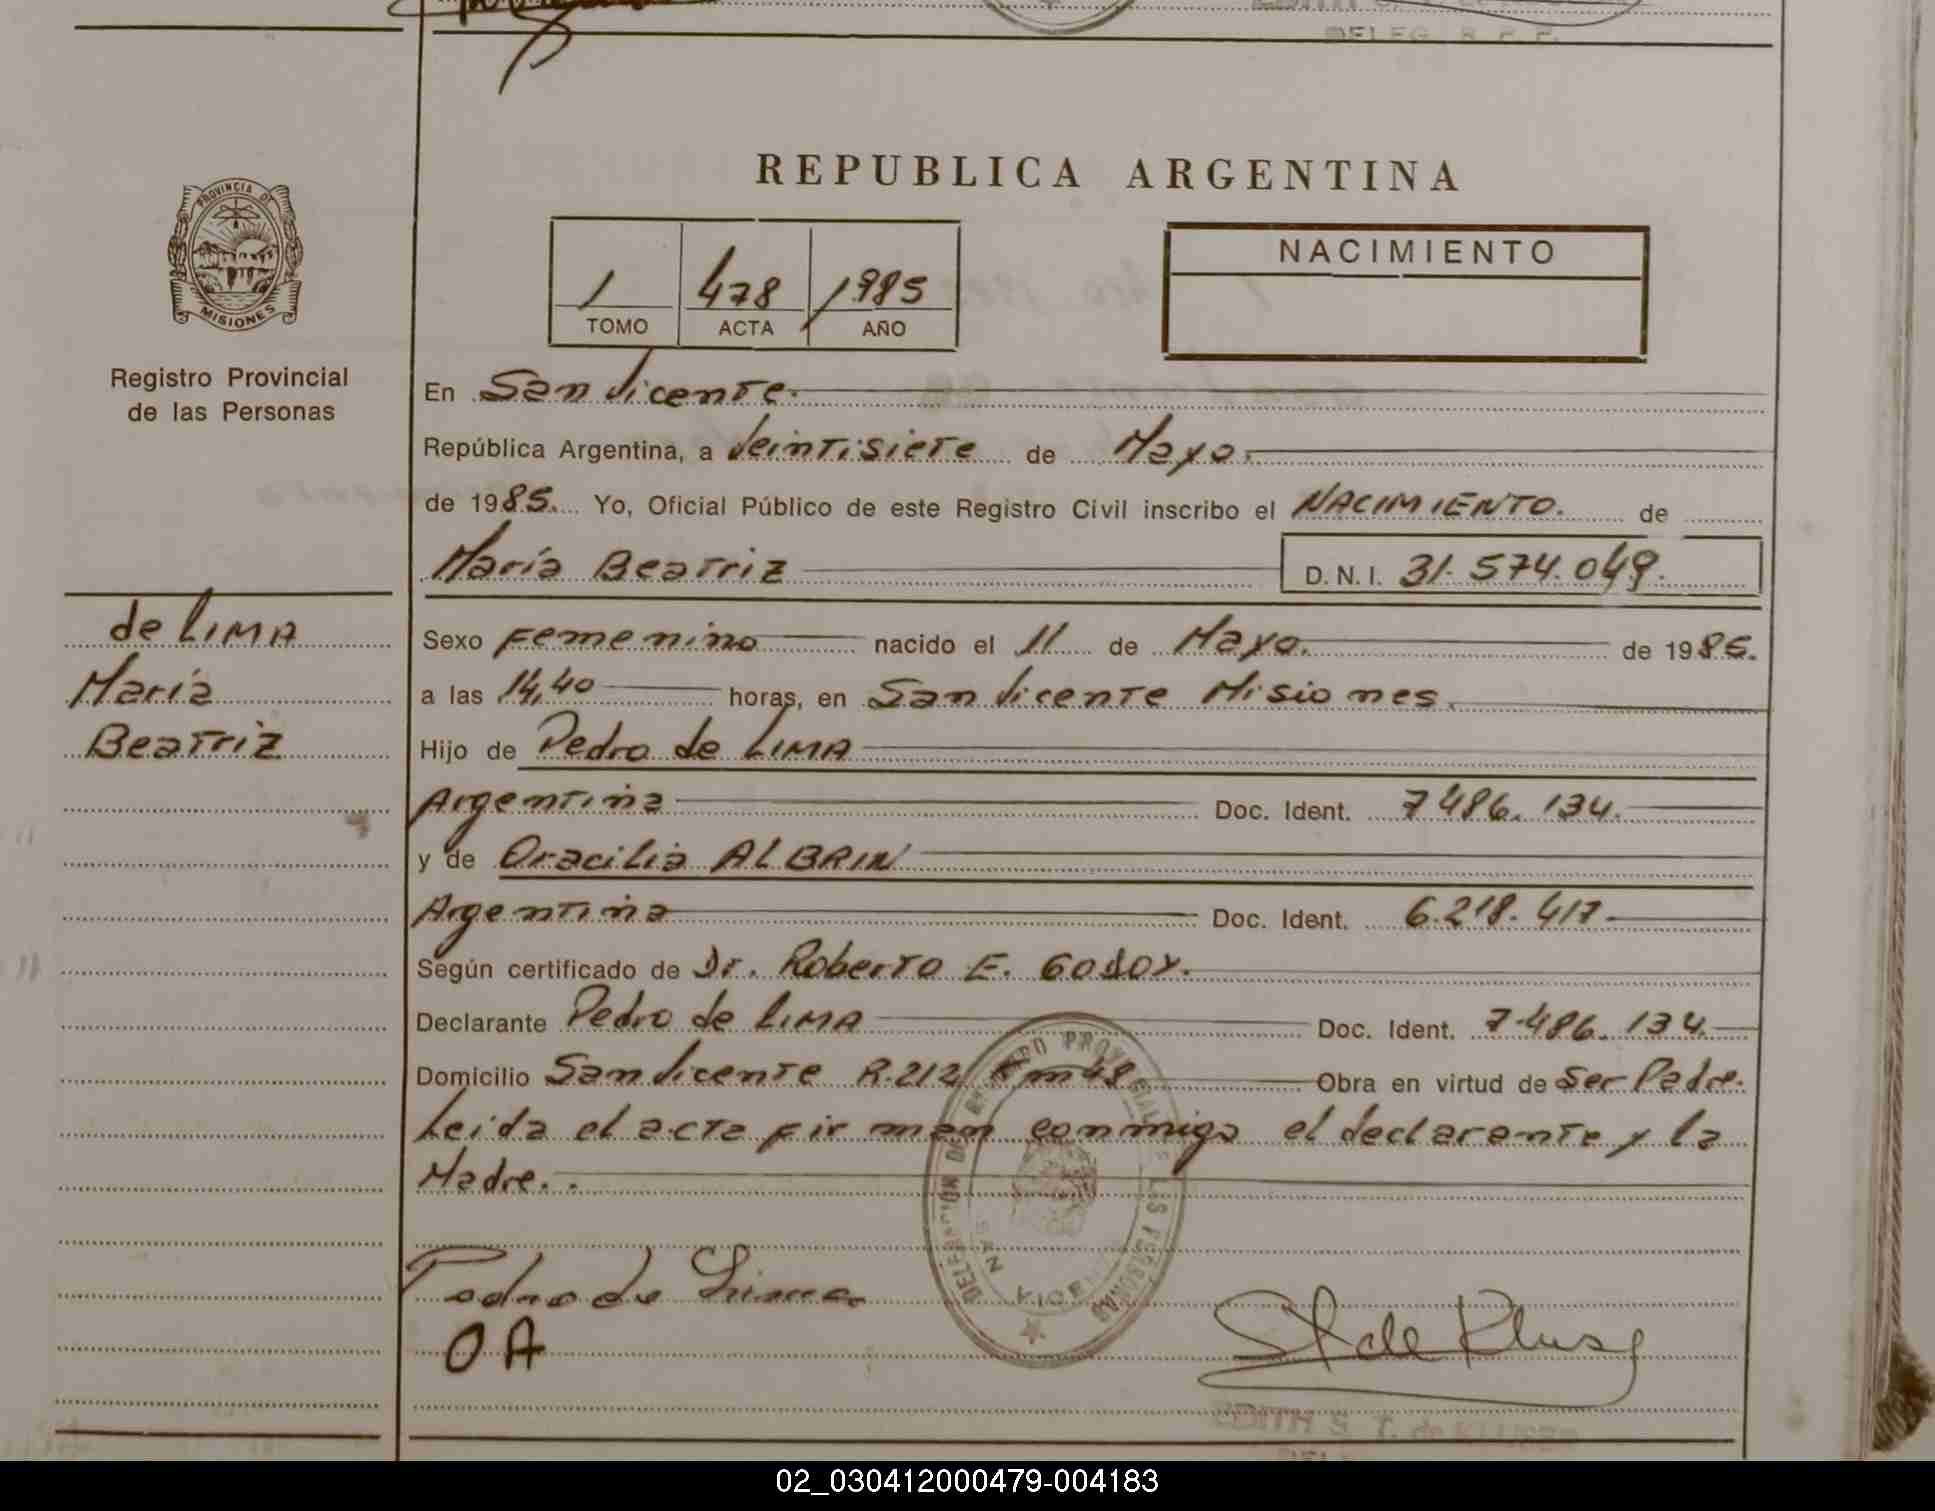 DELEG. R. P. P.
REPUBLICA ARGENTINA
PROVINCIA DE
MISIONES
Registro Provincial
de las Personas
1 478 1985
TOMO ACTA AÑO
NACIMIENTO
En San Vicente.
República Argentina, a Veintisiete de Mayo.
de 1985. Yo, Oficial Público de este Registro Civil inscribo el NACIMIENTO. de
María Beatriz D.N.I. 31.574.049.
de LIMA
María
Beatriz
Sexo Femenino nacido el 11 de Mayo. de 1985.
a las 14,40 horas, en San Vicente Misiones.
Hijo de Pedro de LIMA
Argentina Doc. Ident. 7486.134.
y de Oracilia ALBRIN
Argentina Doc. Ident. 6.218.417.
Según certificado de Dr. Roberto E. Godoy.
Declarante Pedro de LIMA Doc. Ident. 7.486.134.
Domicilio San Vicente R.212 Km 48 Obra en virtud de Ser Padre.
Leida el acta firman conmigo el declarante y la
Madre.
Pedro de Lima
OA
SAN VICENTE
EDITH S. T. de KLUSE
02_030412000479-004183